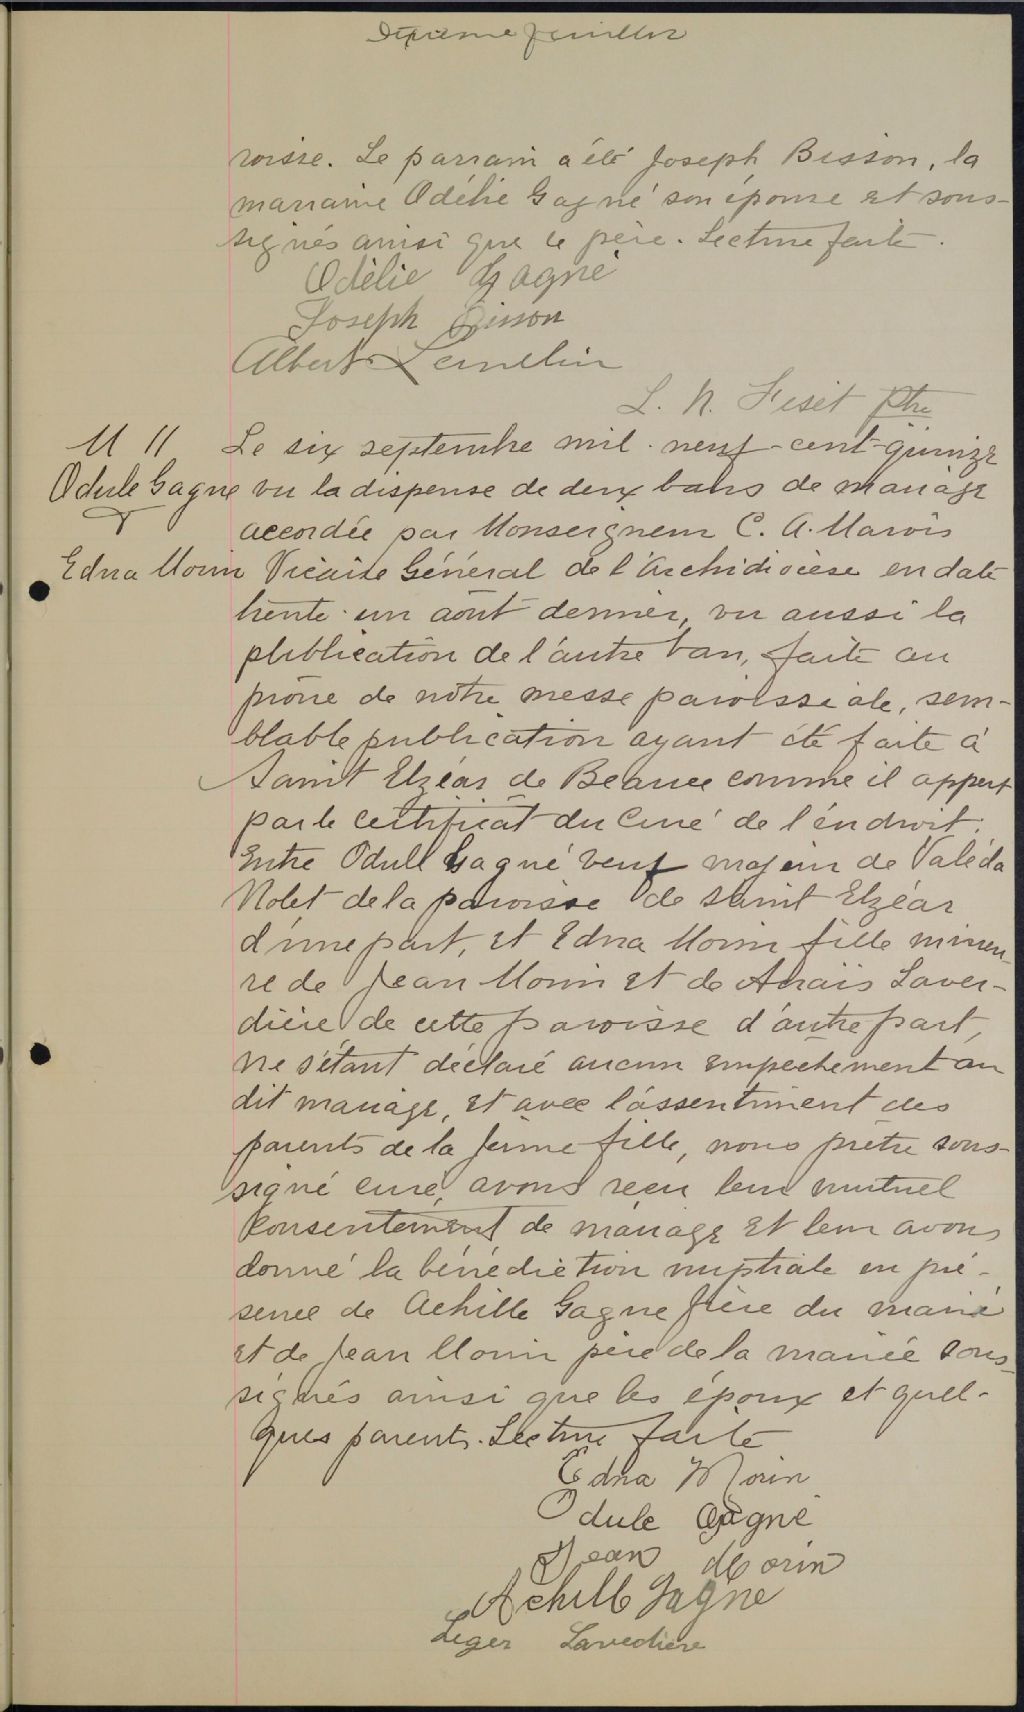 feuillet
roisse. Le parrain a été Joseph Bisson, la
marraine Odélie Gagné son épouse et sous-
signés ainsi que le père. Lecture faite.
Odélie Gagné
Joseph Bisson
Albert Lemelin
L. N. Fiset Ptre
M 11
Le six septembre mil-neuf-cent-quinze
Odule Gagne
vu la dispense de deux bans de mariage
&
accordée par Monseigneur C. A. Marois
Edna Morin
Vicaire Général de l'Archidiocèse en date
trente-un août dernier, vu aussi la
publication de l'autre ban, faite au
prône de notre messe paroissiale, sem-
blable publication ayant été faite à
Saint Elzéar de Beauce comme il appert
par le certificat du Curé de l'endroit;
Entre Odule Gagné veuf majeur de Valéda
Nolet de la paroisse de Saint Elzéar
d'une part, et Edna Morin fille mineu-
re de Jean Morin et de Anaïs Laver-
dière de cette paroisse d'autre part,
ne s'étant déclaré aucun empêchement au
dit mariage, et avec l'assentiment des
parents de la jeune fille, nous prêtre sous-
signé curé, avons reçu leur mutuel
consentement de mariage et leur avons
donné la bénédiction nuptiale en pré-
sence de Achille Gagne frère du marié
et de Jean Morin père de la mariée sous-
signés ainsi que les époux et quel-
ques parents. Lecture faite
Edna Morin
Odule Gagné
Jean Morin
Achille Gagne
Leger Lavediere